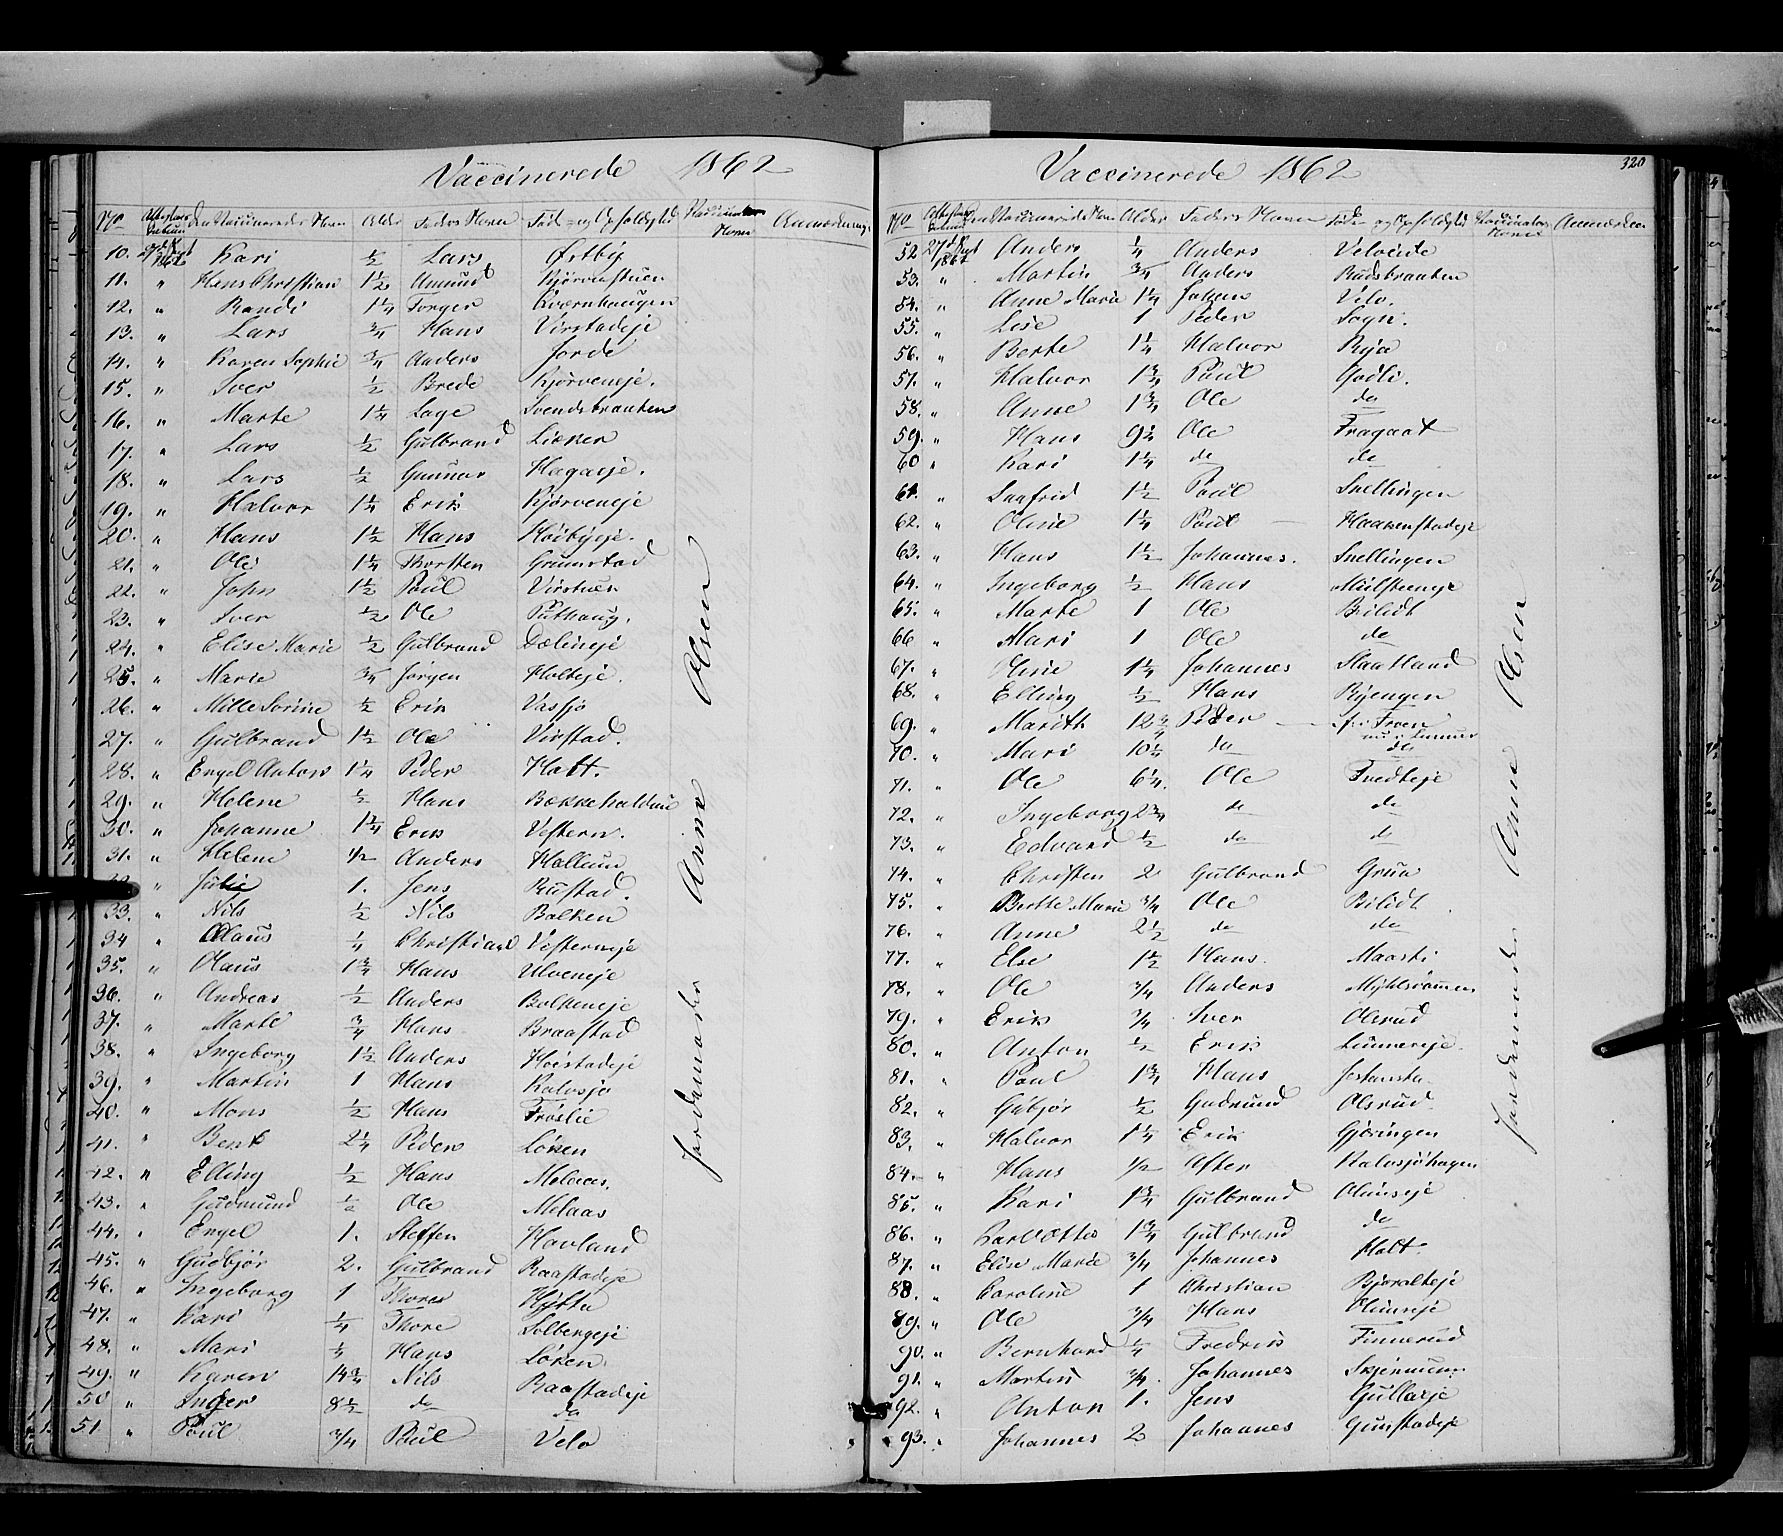 Vaccinerede 1862
No Attestens Datum Den Vaccineredes Navn Alder Faders Navn Føde- og Opholdssted Vaccinateurs Navn Anmærkning
10. 1862 Kari 1/2 Lars Østby
11. " Hans Christian 1 1/2 Amund Kjørvenstuen
12. " Randi 1 1/4 Torger Kværnhaugen
13. " Lars 3/4 Hans Virstadeje
14. " Karen Sophie 3/4 Anders Jorde
15. " Iver 1/2 Brede Kjørveneje.
16. " Marte 1 1/4 Lage Svendsbraaten
17. " Lars 1/2 Gulbrand Lieker
18. " Lars 1/2 Gunnar Hagaeje.
19. " Halvor 1 1/4 Erik Kjørveneje
20. " Hans 1 1/2 Hans Høibyeje.
21. " Ole 1 1/4 Thorsten Grumstad
22. " John 1 1/2 Paul Virstuen
23. " Iver 1/2 Ole Puthaug.
24. " Elise Marie 1/2 Gulbrand Dælineje
25. " Marie 3/4 Jørgen Holteje.
26. " Mille Sørine 1/2 Erik Vassjo
27. " Gulbrand 1 1/2 Ole Virstad.
28. " Engel Anton 1 1/4 Peder Holt.
29. " Helene 1/2 Hans
30. " Johanne 1 1/4 Erik Vestern.
31. " Helene 1/2 Anders Hallum
" Julie 1. Jens Rustad.
33. " Nils 1/2 Nils Balken
34 " Olaus 1/4 Christian Vesterneje
35. " Olaus 1 3/4 Hans Ulveneje
36. " Andreas 1/2 Anders Balkeneje
37. " Marte 3/4 Hans Braastad
38. " Ingeborg 1 1/2 Anders Høistadeje
39. " Martin 1 Hans Kalvsjø
40. " Mons 1/2 Hans Frøslie
41. " Bent 2 1/4 Peder Løken
42. " Elling 1/2 Hans Melaas.
43. " Gudmund 1/2 Ole Melaas
44. " Engel 1. Steffen Hovland
45. " Gudbjør 2. Gulbrand Raastadeje
46. " Ingeborg 1 Thore Hytta
47. " Kari 1/4 Thore Solbergeje
48. " Mari 1/4 Hans Løken
49. " Karen 14 3/4 Nils Raastadeje
50 " Inger 8 1/2 do do
51. " Paul 3/4 Paul Velo
Jordemoder Anne Olsen
Vaccinerede 1862
320
No Attestens Datum Den Vaccineredes Navn Alder Faders Navn Føde- og Opholdssted Vaccinateurs Navn Anmærkn
52 1862 Anders 1/4 Anders Veloeide
53. " Martin 3/4 Anders Rudsbraaten
54. " Anne Marie 1 1/4 Johan Velo.
55. " Lise 1 Peder Sogn.
56. " Berte 1 1/4 Halvor Rya
57. " Halvor 1 3/4 Paul Godli.
58. " Anne 1 3/4 Ole do
59. " Hans 9 1/4 Ole Fragaat
60 " Kari 1 1/4 do do
61. " Sigfrid 1 1/2 Paul Snellingen
62. " Oline 1 1/4 Paul Haakenstadeje
63. " Hans 1 1/2 Johannes. Snellingen
64. " Ingeborg 1/2 Hans Mulsteneje
65. " Marte 1 Ole Bilidt
66 " Mari 1 Ole do
67. " Oline 1 1/4 Johannes Slaatland
68. " Elling 1/2 Hans Ryengen
69. " Marith 12 3/4 Peder f. i Froen nu i Lunner
70. " Mari 10 1/4 do do
71. " Ole 6 1/4. Ole Tvedteje
72. " Ingeborg 2 3/4 do do
73. " Edvard 1/2 do do
74. " Christen 2 Gulbrand Grua
75. " Berthe Marie 3/4 Ole Bilidt
76. " Anne 2 1/2 do do
77. " Else 1 1/2 Hans. Maasti
78. " Ole 3/4 Anders
79. " Erik 3/4 Iver Olsrud
80. " Anton 1/2 Erik Lunnereje.
81. " Paul 1 3/4 Hans
82. " Gubjør 1/2 Gudmund Olsrud
83. " Halvor 1 1/4 Erik Gjøringen
84. " Hans 1/2 After Kalvsjøhagen
85. " " Kari 1 3/4 Gulbrand Olimseje
86. " Karl Otto 1 3/4 Gulbrand do
87. " Elise Marie 3/4 Johannes Holt.
88. " Caroline 1 Christian Bjøralteje
89. " Ole 3/4 Hans Olimseje
90. " Bernhard 1/4 Fredrik Finnerud
91. " Martin 3/4. Johannes Skjernum
92. " Anton 1. Jens Gullaeje
93. " Johannes 2 Johannes Grinstadeje
Jordemoder Anne Olsen